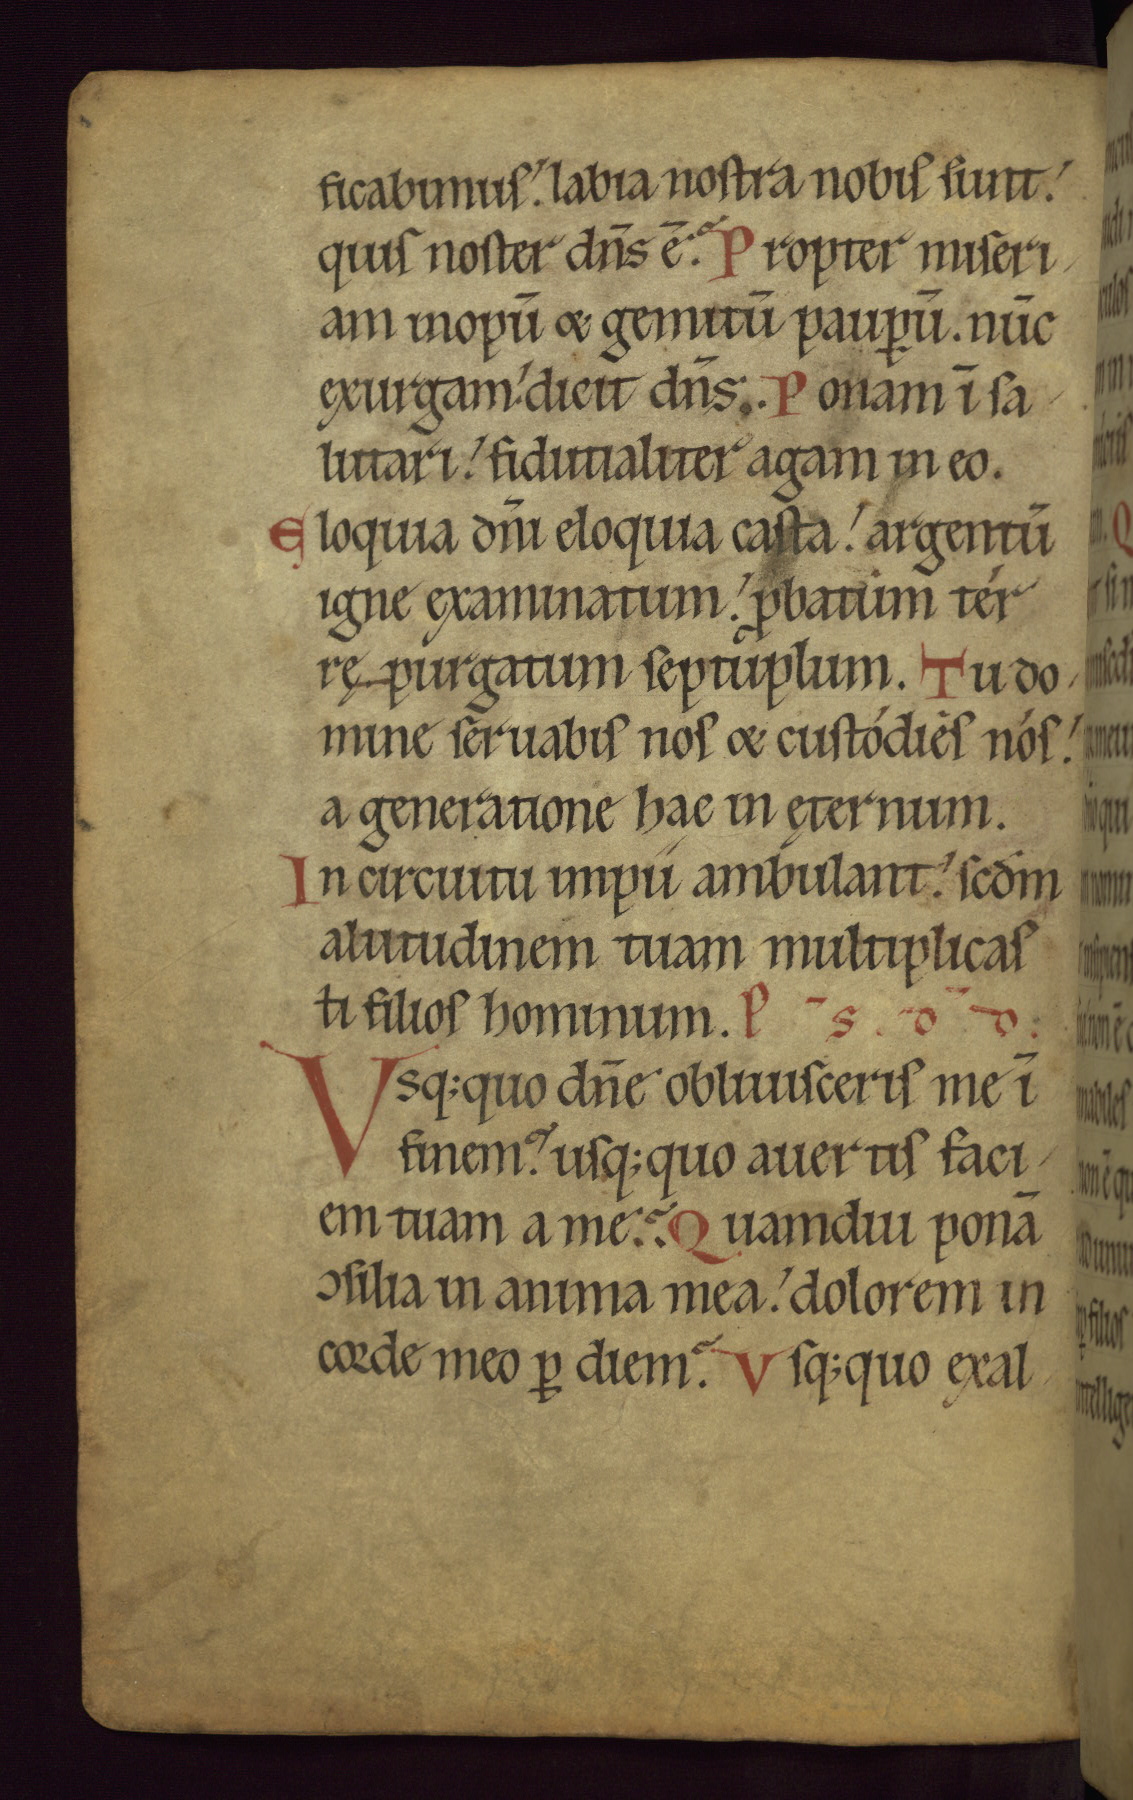 ficabimus. labia nostra nobis sunt.
quis noster dn̄s ē. Propter miseri
am inopū & gemitū paup̱ū. nūc
exurgam. dicit dn̄s. Ponam ī sa
lutari. fidutialiter agam in eo.
Eloquia dn̄i eloquia casta. argentū
igne examinatum. ꝓbatum ter
rę purgatum septuplum. Tu do
mine seruabis nos & custódiés nós.
a generatione hac in ęternum.
In circuitu impii ambulant. scd̄m
altitudinem tuam multiplicas
ti filios hominum. P
Vsq;quo dn̄e obliuisceris me ī
finem. usq;quo auertis faci
em tuam a me. Quamdiu ponā
ↄsilia in anima mea. dolorem in
corde meo ꝑ diem. Vsq;quo exal